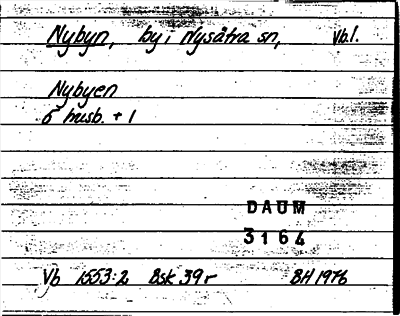 Nybyn, by i Nysätra sn, Vb.
Nybyen
5 husb. + 1
DAUM
3164
Vb 1553:2 Bsk 39r BH 1976